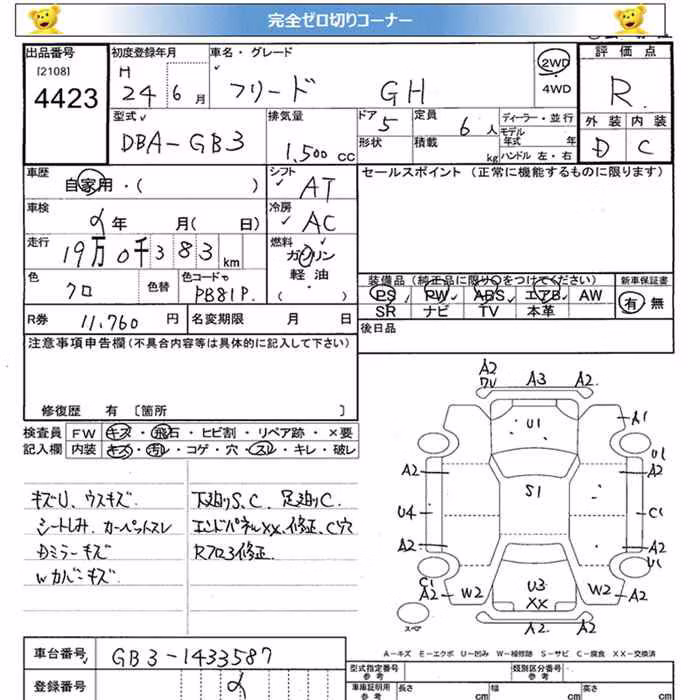 完全ゼロ切りコーナー
出品番号 初度登録年月 車名・グレード 2WD 評価点
[2108] H
4423 24 6月 フリード GH 4WD R
型式 排気量 ドア 5 定員 6人 ディーラー・並行 外装 内装
モデル年式 年
DBA-GB3 1,500cc 形状 積載 kg ハンドル 左・右 D C
車歴 シフト セールスポイント (正常に機能するものに限ります)
自家用・( ) AT
車検 冷房
年 月( 日) AC
走行 燃料
19万0千383km ガソリン
軽油
( ・ )
色 色替 色コード
クロ PB81P 装備品 (純正品に限り○をつけてください) 新車保証書
PS PW ABS エアB AW 有 無
SR ナビ TV 本革
R券 11,760円 名変期限 月 日 後日品
注意事項申告欄(不具合内容等は具体的に記入して下さい)
修復歴 有 [箇所 ]
検査員 FW キズ・飛石・ヒビ割・リペア跡・×要
記入欄 内装 キズ・汚レ・コゲ・穴・スレ・キレ・破レ
キズU、ウスキズ 下廻りS、C 足廻りC
シートしみ、カーペットスレ エンドパネルXX、修正、C穴
Dミラーキズ Rフロア修正
Wカバーキズ
A2 A3 A2
U1 A1
U1
A2 A2
S1
U4 C1
A2 A2
C1 U1
A2 W2 U3 W2 A2
XX
スペア A2 A2
A-キズ E-エクボ U-凹み W-補修跡 S-サビ C-腐食 XX-交換済
車台番号 GB3-1433587 型式指定番号 参考 類別区分番号 参考
登録番号 車庫証明用 参考 長さ cm 幅 cm 高さ cm